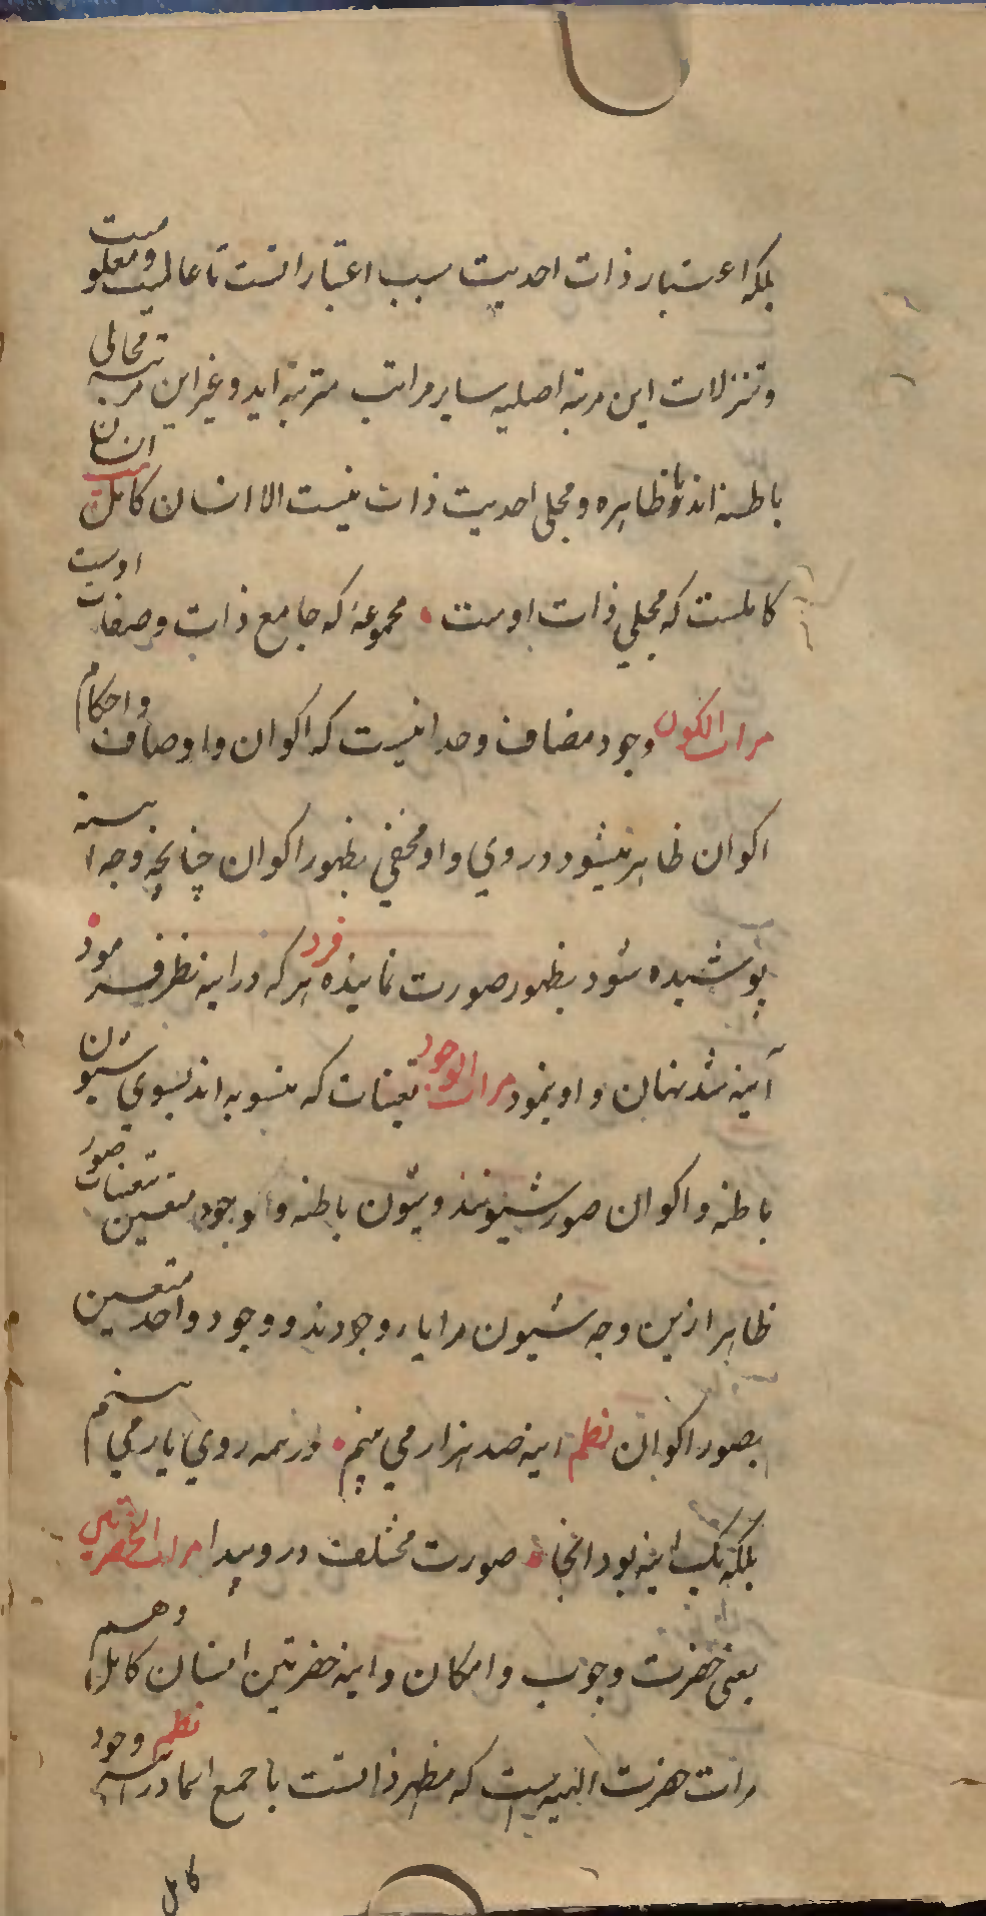 بلکه اعتبار ذات احدیت سبب اعتبار انست تا عالمیت و معلومیت
و تنزلات این مرتبه اصلیه سایر مراتب مترتبه اید و غیر این مرتبه مجالی
باطنه اند و یا ظاهره و مجلی احدیت ذات نیست الا انسان کامل انسان
کاملست که مجلی ذات اوست • مجموعه که جامع ذات و صفات اوست
مرات الکون وجود مضاف وحدانیست که اکوان و اوصاف و احکام
اکوان ظاهر نمیشود در وی و او مخفی بظهور اکوان چنانچه وجه اینه
پوشیده شود بظهور صورت نماینده فرد هر که در اینه نظر فرمود •
آینه شد نهان و او بنمود مرات الوجود تعینات که منسوبه اند بسوی شیون
باطنه و اکوان صور شیونند و شیون باطنه و وجود متعین تعینات صور
ظاهر ازین وجه شیون مرایاء وجودند و وجود واحد متعین
بصور اکوان نظم اینه صد هزار می بینم • در همه روی یار می بینم
بلکه یک اینه بود انجا • صورت مختلف درو پیدا مرات الحضرتین
یعنی حضرت وجوب و امکان و اینه حضرتین انسان کامل و هم
مرات حضرت الهیه است که مظهر ذاتست با جمع اسما نظم در آینه وجود
کامل